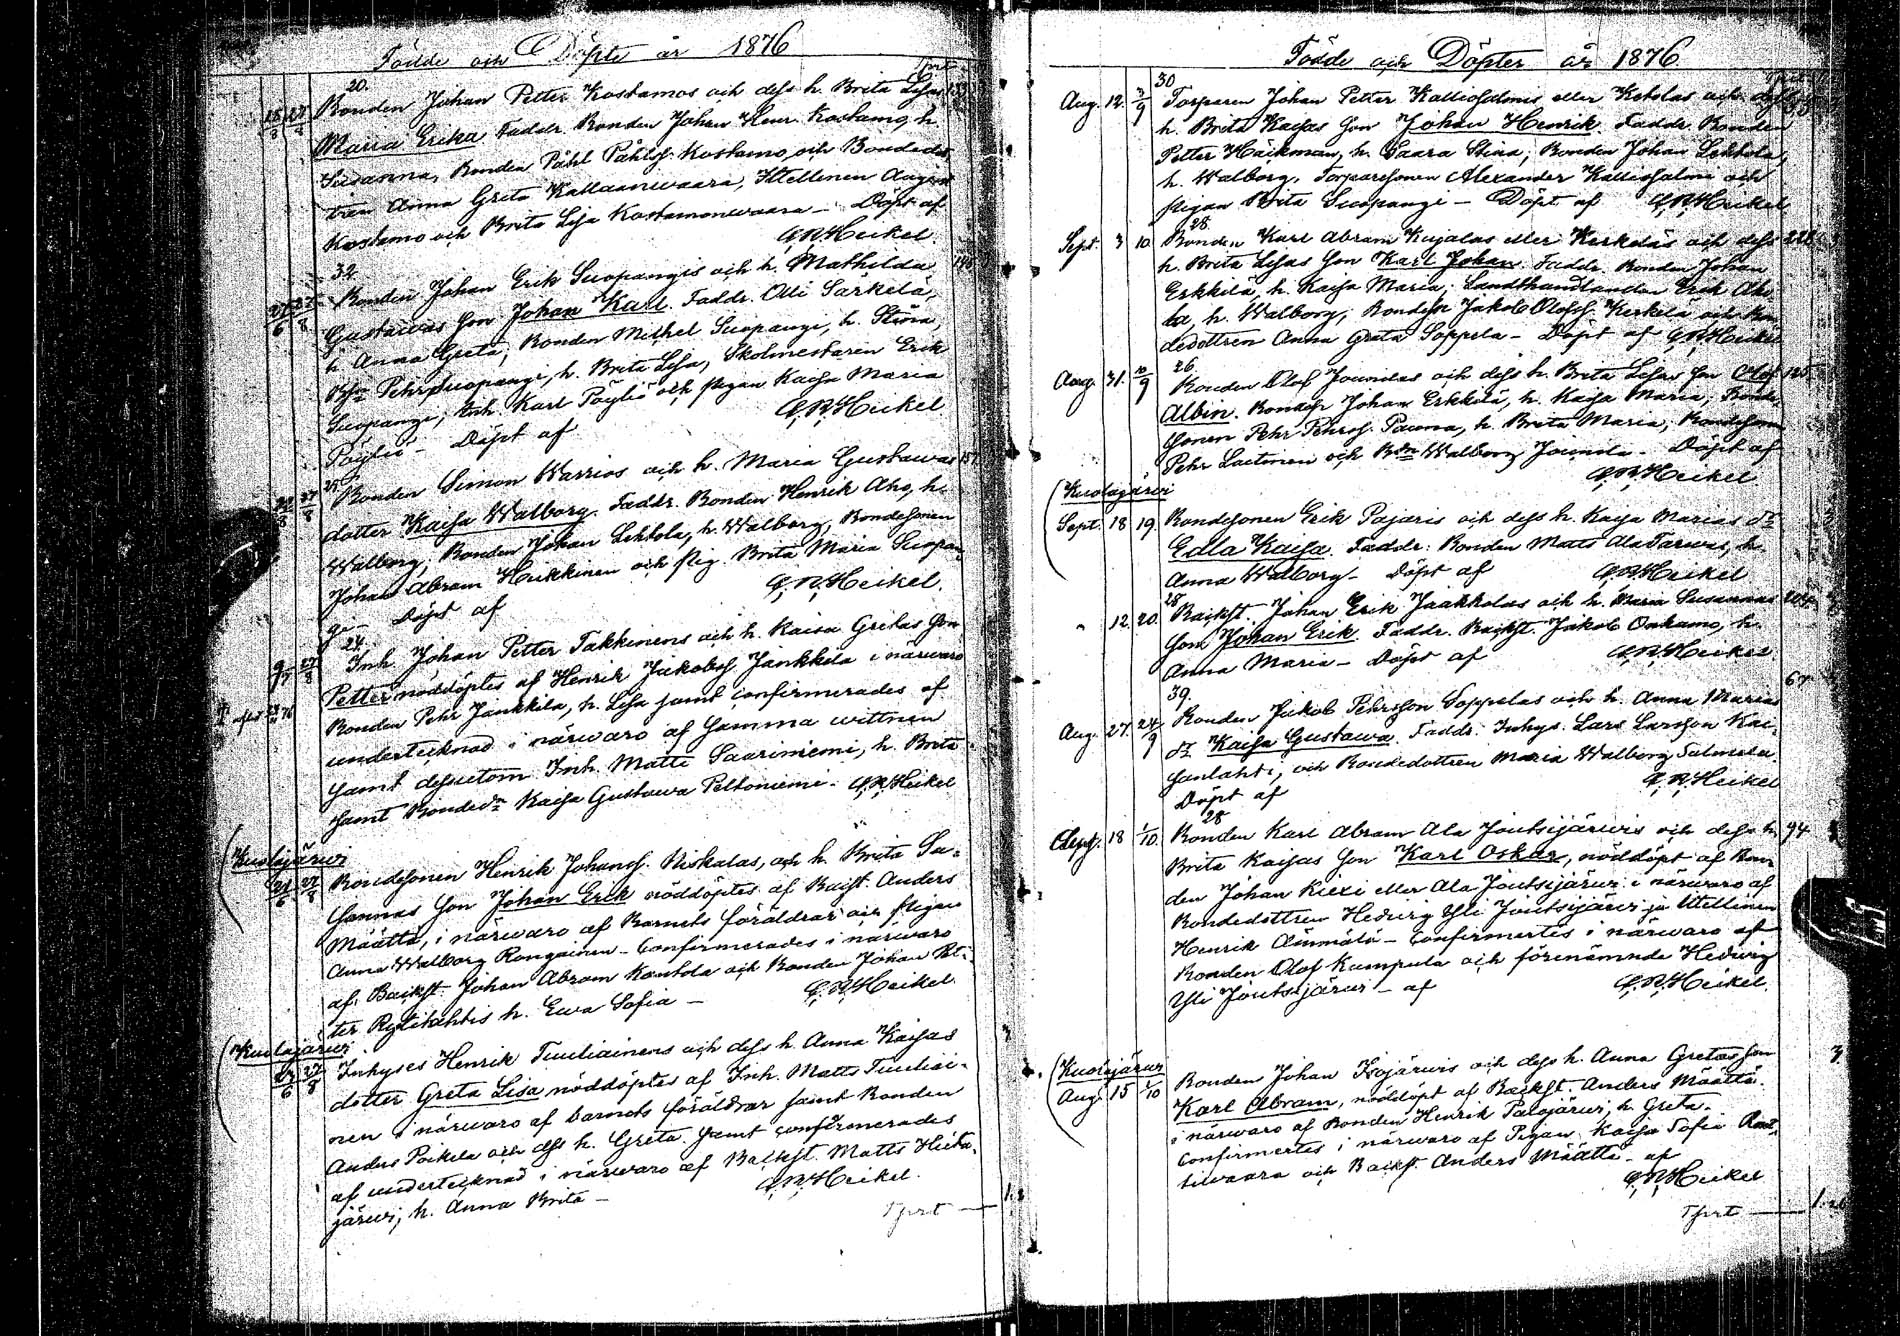 Födde och Döpte år 1876
Tprt
20.
18/8 27/8 Bonden Johan Petter Kostamos och dess h. Brita Lisas 133
Maria Erika Faddr. Bonden Johan Henr. Kostamo, h.
Susanna, Bonden Påhl Påhlss. Kostamo, och Bondedot
tren Anna Greta Kallaanwaara, Ittellinen August
Kostamo och Brita Lisa Kostamonwaara — Döpt af
G.R.Heikel.
32
27/6 27/8 Bonden Johan Erik Suopangis och h. Mathilda
Gustawas son Johan Karl. Faddr. Olli Särkelä,
h. Anna Greta; Bonden Mikkel Suopangi, h. Stina,
Pehr Suopangi, h. Brita Lisa, Skolmestaren Erik
Suopangi, Inh. Karl Pöyliö och pigan Kaisa Maria
Pöyliö — Döpt af G.R.Heikel
25
27/8 Bonden Simon Warrios och h. Maria Gustawas 157
dotter Kaisa Walborg. Faddr. Bonden Henrik Aho, h.
Walborg, Bonden Johan Lehtola, h. Walborg, Bondesonen
Johan Abram Heikkinen och Pig. Brita Maria Suopan-
gi — Döpt af G.R.Heikel.
24
9/7 27/8 Inh. Johan Petter Takkinens och h. Kaisa Gretas son
Petter nöddöptes af Henrik Jakobss. Jänkkilä i närwaro
Bonden Pehr Jänkkilä, h. Lisa samt confirmerades af
undertecknad i närwaro af samma wittnen
samt dessutom Inh. Matti Saariniemi, h. Brita
samt Bondedn Kaisa Gustawa Peltoniemi — G.R.Heikel
Kuolajärwi
21/6 27/8 Bondesonen Henrik Johanss. Niskalas, och h. Brita Su-
sannas son Johan Erik nöddöptes af Backst. Anders
Määttä, i närwaro af Barnets föräldrar och pigan
Anna Walborg Rongainen — Confirmerades i närwaro
af Backst. Johan Abram Kantola och Bonden Johan Pet-
ter Rytilahtis h. Ewa Sofia — G.R.Heikel
Kuolajärwi
23/6 27/8 Inhyses Henrik Tuuliainens och dess h. Anna Kaisas
dotter Greta Lisa nöddöptes af Inh. Matts Tuuliai-
nen i närwaro af barnets föräldrar samt Bonden
Anders Poikela och dess h. Greta samt confirmerades
af undertecknad i närwaro af Backst. Matts Hieta-
järwi, h. Anna Brita — G.R.Heikel.
Tprt — 1.
Födde och Döpter år 1876.
30
Aug. 12. 3/9 Torparen Johan Petter Kalliosalmis eller Ketolas och dess
h. Brita Kaisas son Johan Henrik. Faddr. Bonden
Petter Häckman, h. Saara Stina; Bonden Johan Lehtola,
h. Walborg, Torparesonen Alexander Kalliosalmi och
pigan Brita Suopangi — Döpt af G.R.Heikel
28.
Sept. 3 10 Bonden Karl Abram Kujalas eller Kerkeläs och dess 228
h. Brita Lisas son Karl Johan. Faddr. Bonden Johan
Erkkilä, h. Kaisa Maria; Landthandlanden Erik Aho
la, h. Walborg; Bonden Jakob Olofss. Kerkelä och Bon
dedottren Anna Greta Soppela — Döpt af G.R.Heikel
26.
Aug. 31. 10/9 Bonden Olof Jounilas och dess h. Brita Lisas son Olof 125
Albin. Bonden Johan Erkkilä, h. Kaisa Maria, Bonde
sonen Pehr Pehrss. Pauna, h. Brita Maria, Bondesonen
Pehr Laitinen och Bdn Walborg Jounila — Döpt af
G.R.Heikel
Kuolajärwi
Sept. 18 19. Bondesonen Erik Pajaris och dess h. Kaisa Marias dr
Edla Kaisa. Faddr. Bonden Matts Ala Tarwis, h.
Anna Walborg — Döpt af G.R.Heikel
28
" 12. 20. Backst. Johan Erik Jaakkolas och h. Maria Susannas 204
son Johan Erik. Faddr. Backst. Jakob Oakamo, h.
Anna Maria — Döpt af G.R.Heikel
39.
67
Aug. 27. 24/9 Bonden Jakob Pehrsson Soppelas och h. Anna Marias
dr Kaisa Gustawa. Faddr. Inhys. Lars Larsson Kai-
sanlahti, och Bondedottren Maria Walborg Salmela.
Döpt af G.R.Heikel
28
Sept. 18 1/10 Bonden Karl Abram Ala Joutsijärwis och dess h. 94
Brita Kaisas son Karl Oskar, nöddöpt af Bon-
den Johan Kiexi eller Ala Joutsijärwi i närwaro af
Bondedottren Hedwig Yli Joutsijärwi ja Ittellinen
Henrik Ainmälä — Confirmertes i närwaro af
Bonden Olof Kumpula och förenämnde Hedwig
Yli Joutsijärwi — af G.R.Heikel.
Kuolajärwi
Aug. 15 1/10 Bonden Johan Isojärwis och dess h. Anna Gretas son 3
Karl Abram, nöddöpt af Backst. Anders Määttä
i närwaro af Bonden Henrik Palojärwi, h. Greta.
Confirmertes i närwaro af Pigan Kaisa Sofia Raat-
iwaara och Backst. Anders Määttä — af
G.R.Heikel
Tprt — 1.